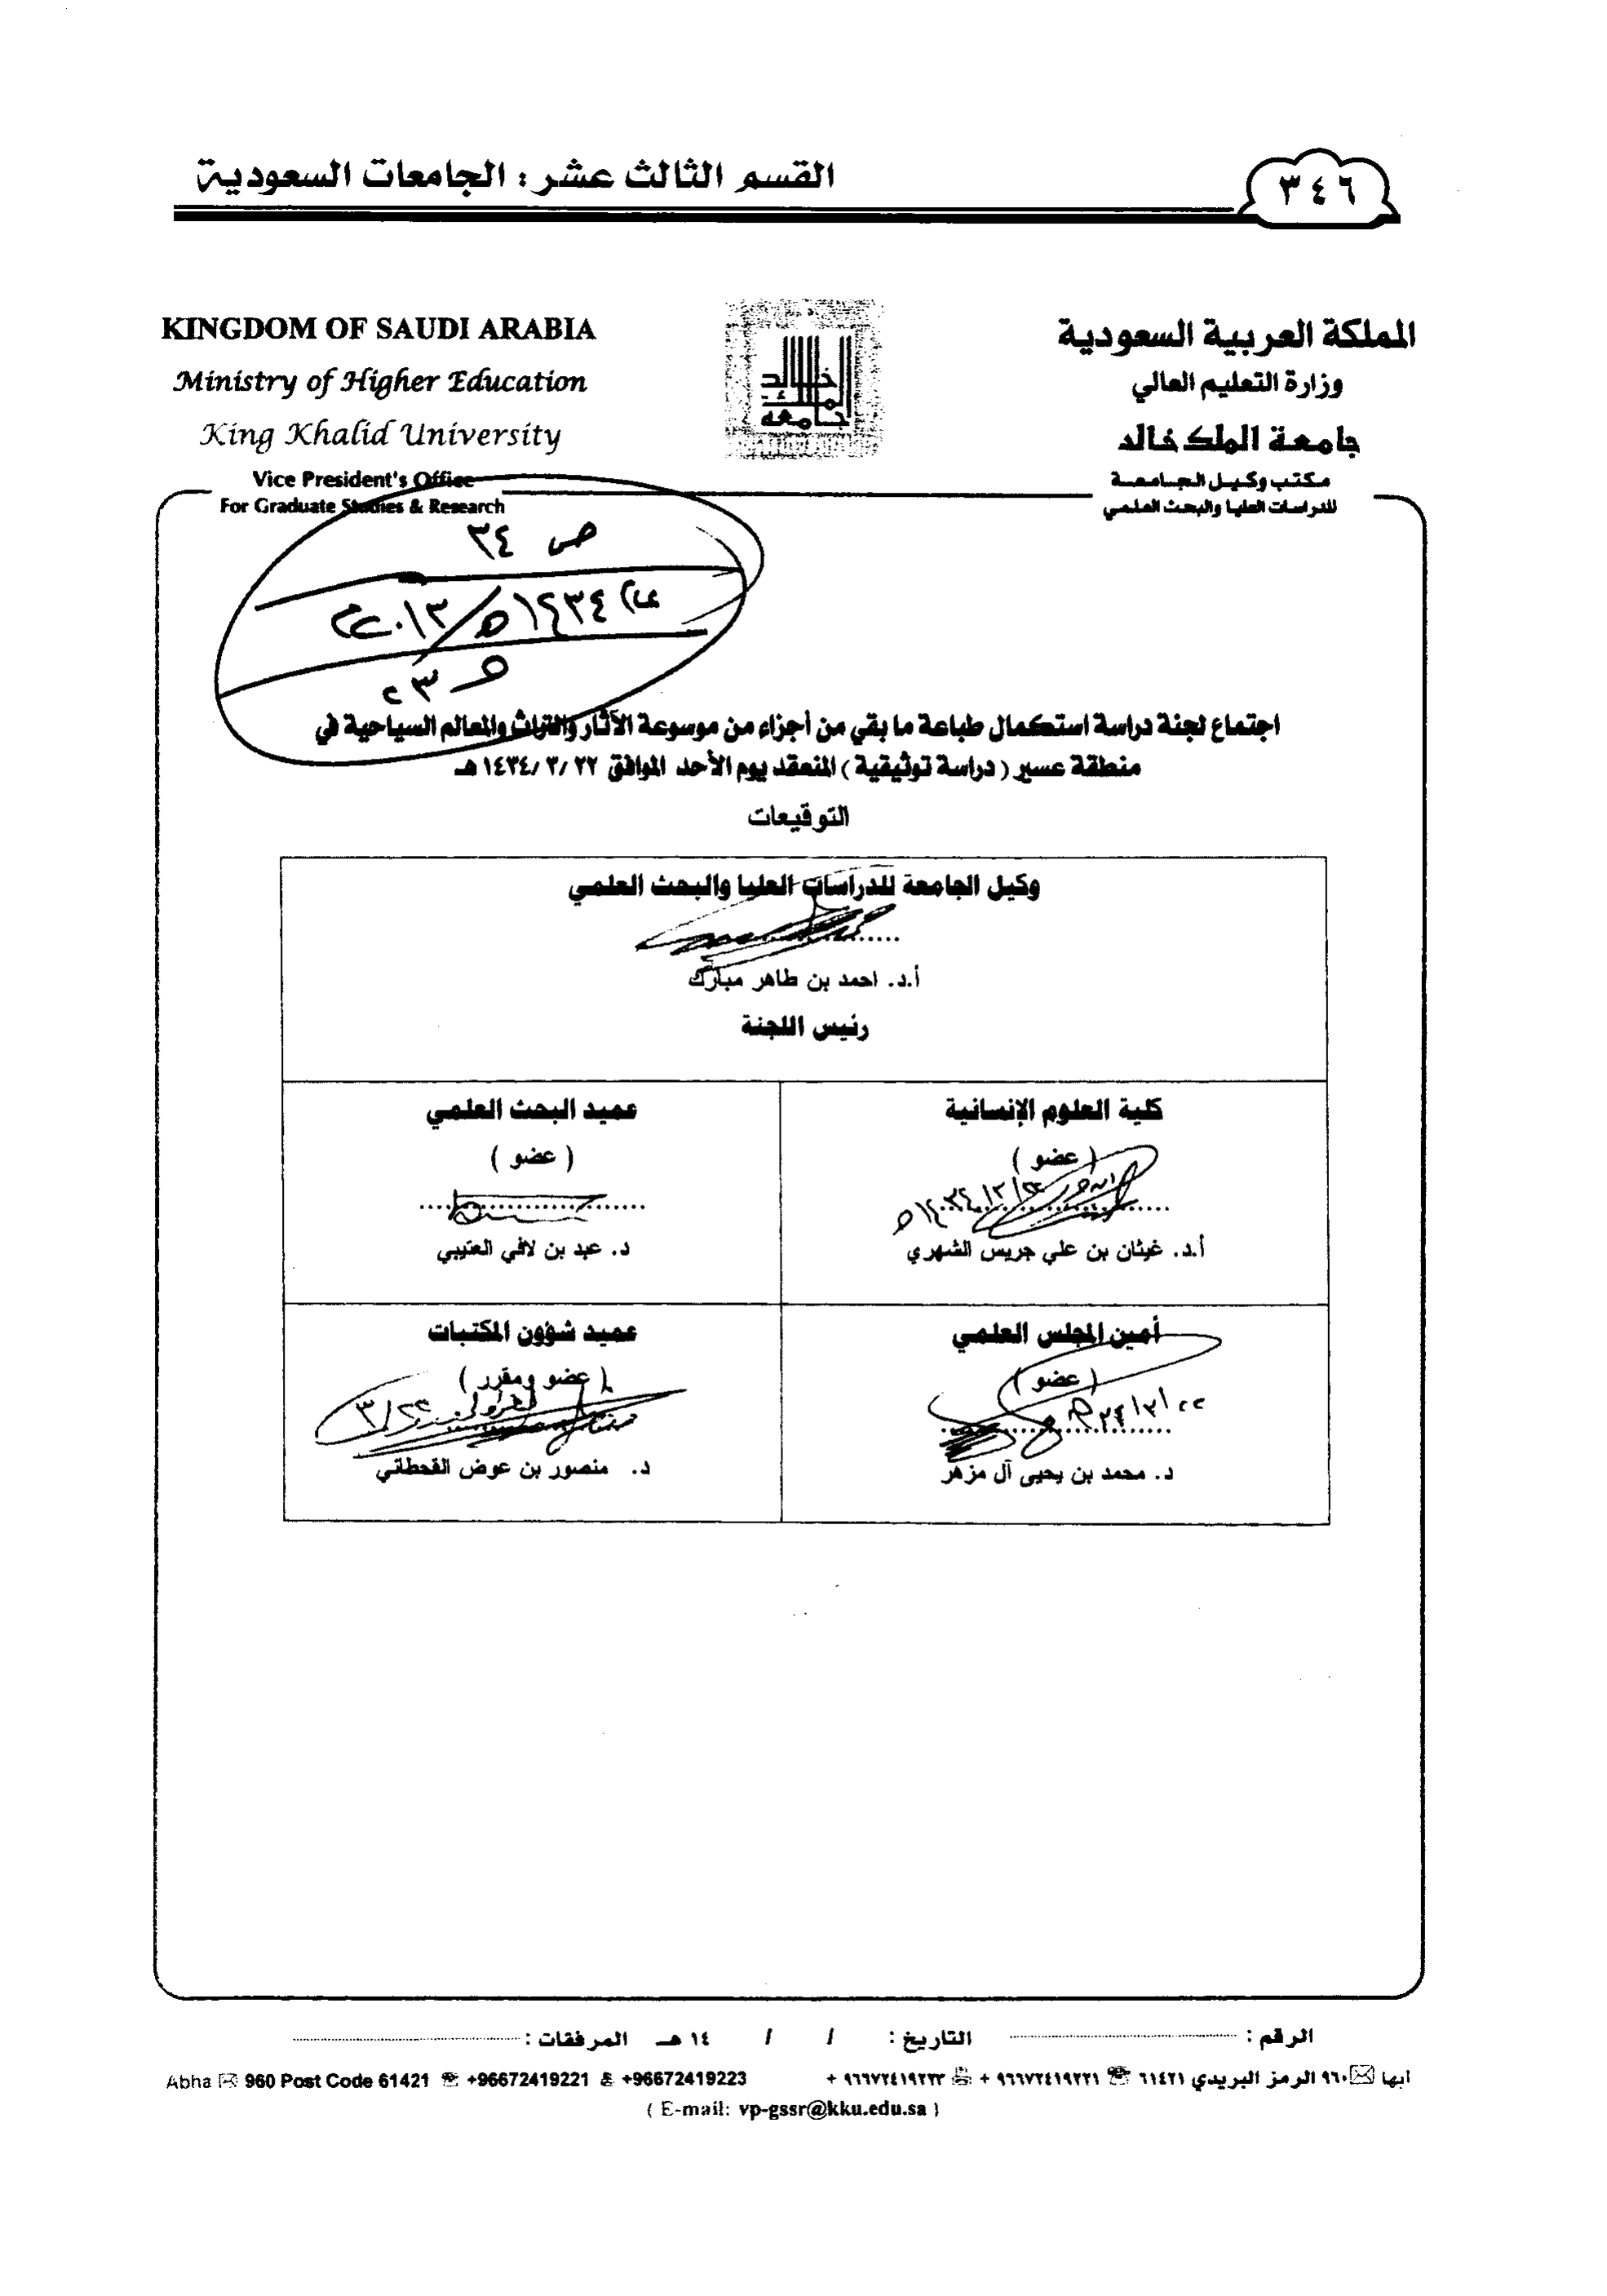 القسم الثالث عشر : الجامعات السعودية
٣٤٦
KINGDOM OF SAUDI ARABIA
Ministry of Higher Education
King Khalid University
Vice President's Office
For Graduate Studies & Research
جامعة الملك خالد
المملكة العربية السعودية
وزارة التعليم العالي
جامعة الملك خالد
مكتب وكيل الجامعة
للدراسات العليا والبحث العلمي
ص ٣٤
١٤٣٤هـ/٢٠١٣م
اجتماع لجنة دراسة استكمال طباعة ما بقي من أجزاء من موسوعة الآثار والتراث والمعالم السياحية في
منطقة عسير ( دراسة توثيقية ) المنعقد يوم الأحد الموافق ٢٢ /٣ /١٤٣٤هـ
التوقيعات
وكيل الجامعة للدراسات العليا والبحث العلمي
أ.د. احمد بن طاهر مبارك
رئيس اللجنة
كلية العلوم الإنسانية
( عضو )
١٤٣٤/٣/٢٢هـ
أ.د. غيثان بن علي جريس الشهري
عميد البحث العلمي
( عضو )
د. عبد بن لافي العتيبي
أمين المجلس العلمي
( عضو )
٣٤/٣/٢٢هـ
د. محمد بن يحيى آل مزهر
عميد شؤون المكتبات
( عضو ومقرر )
٣/٢٢
د. منصور بن عوض القحطاني
الرقم : التاريخ : / / ١٤ هـ المرفقات :
Abha 960 Post Code 61421 +96672419221 +96672419223
ابها ٩٦٠ الرمز البريدي ٦١٤٢١ ٩٦٦٧٢٤١٩٢٢١ + ٩٦٦٧٢٤١٩٢٢٣ +
( E-mail: vp-gssr@kku.edu.sa )